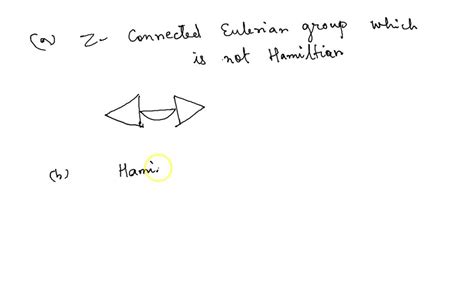 (a) 2- Connected Eulerian group which
is not Hamiltian
(b) Hami